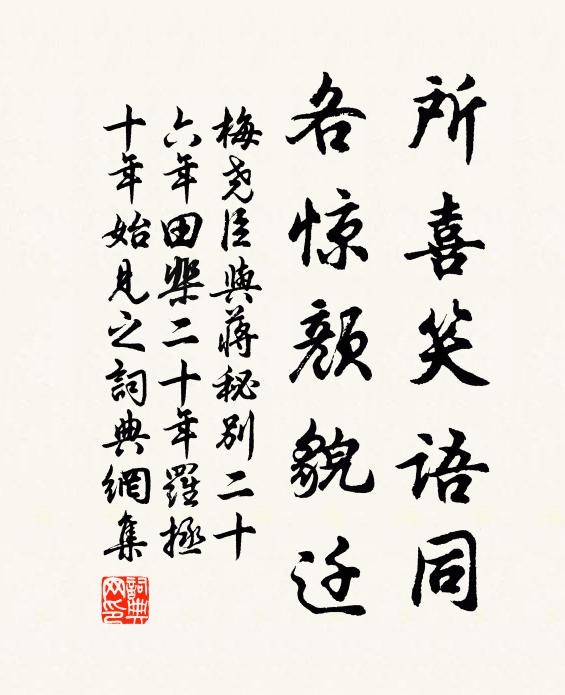 所喜笑语同
各惊颜貌迁
梅尧臣與蒋秘别二十
六年田棐二十年羅拯
十年始見之詞典網集
詞典網印